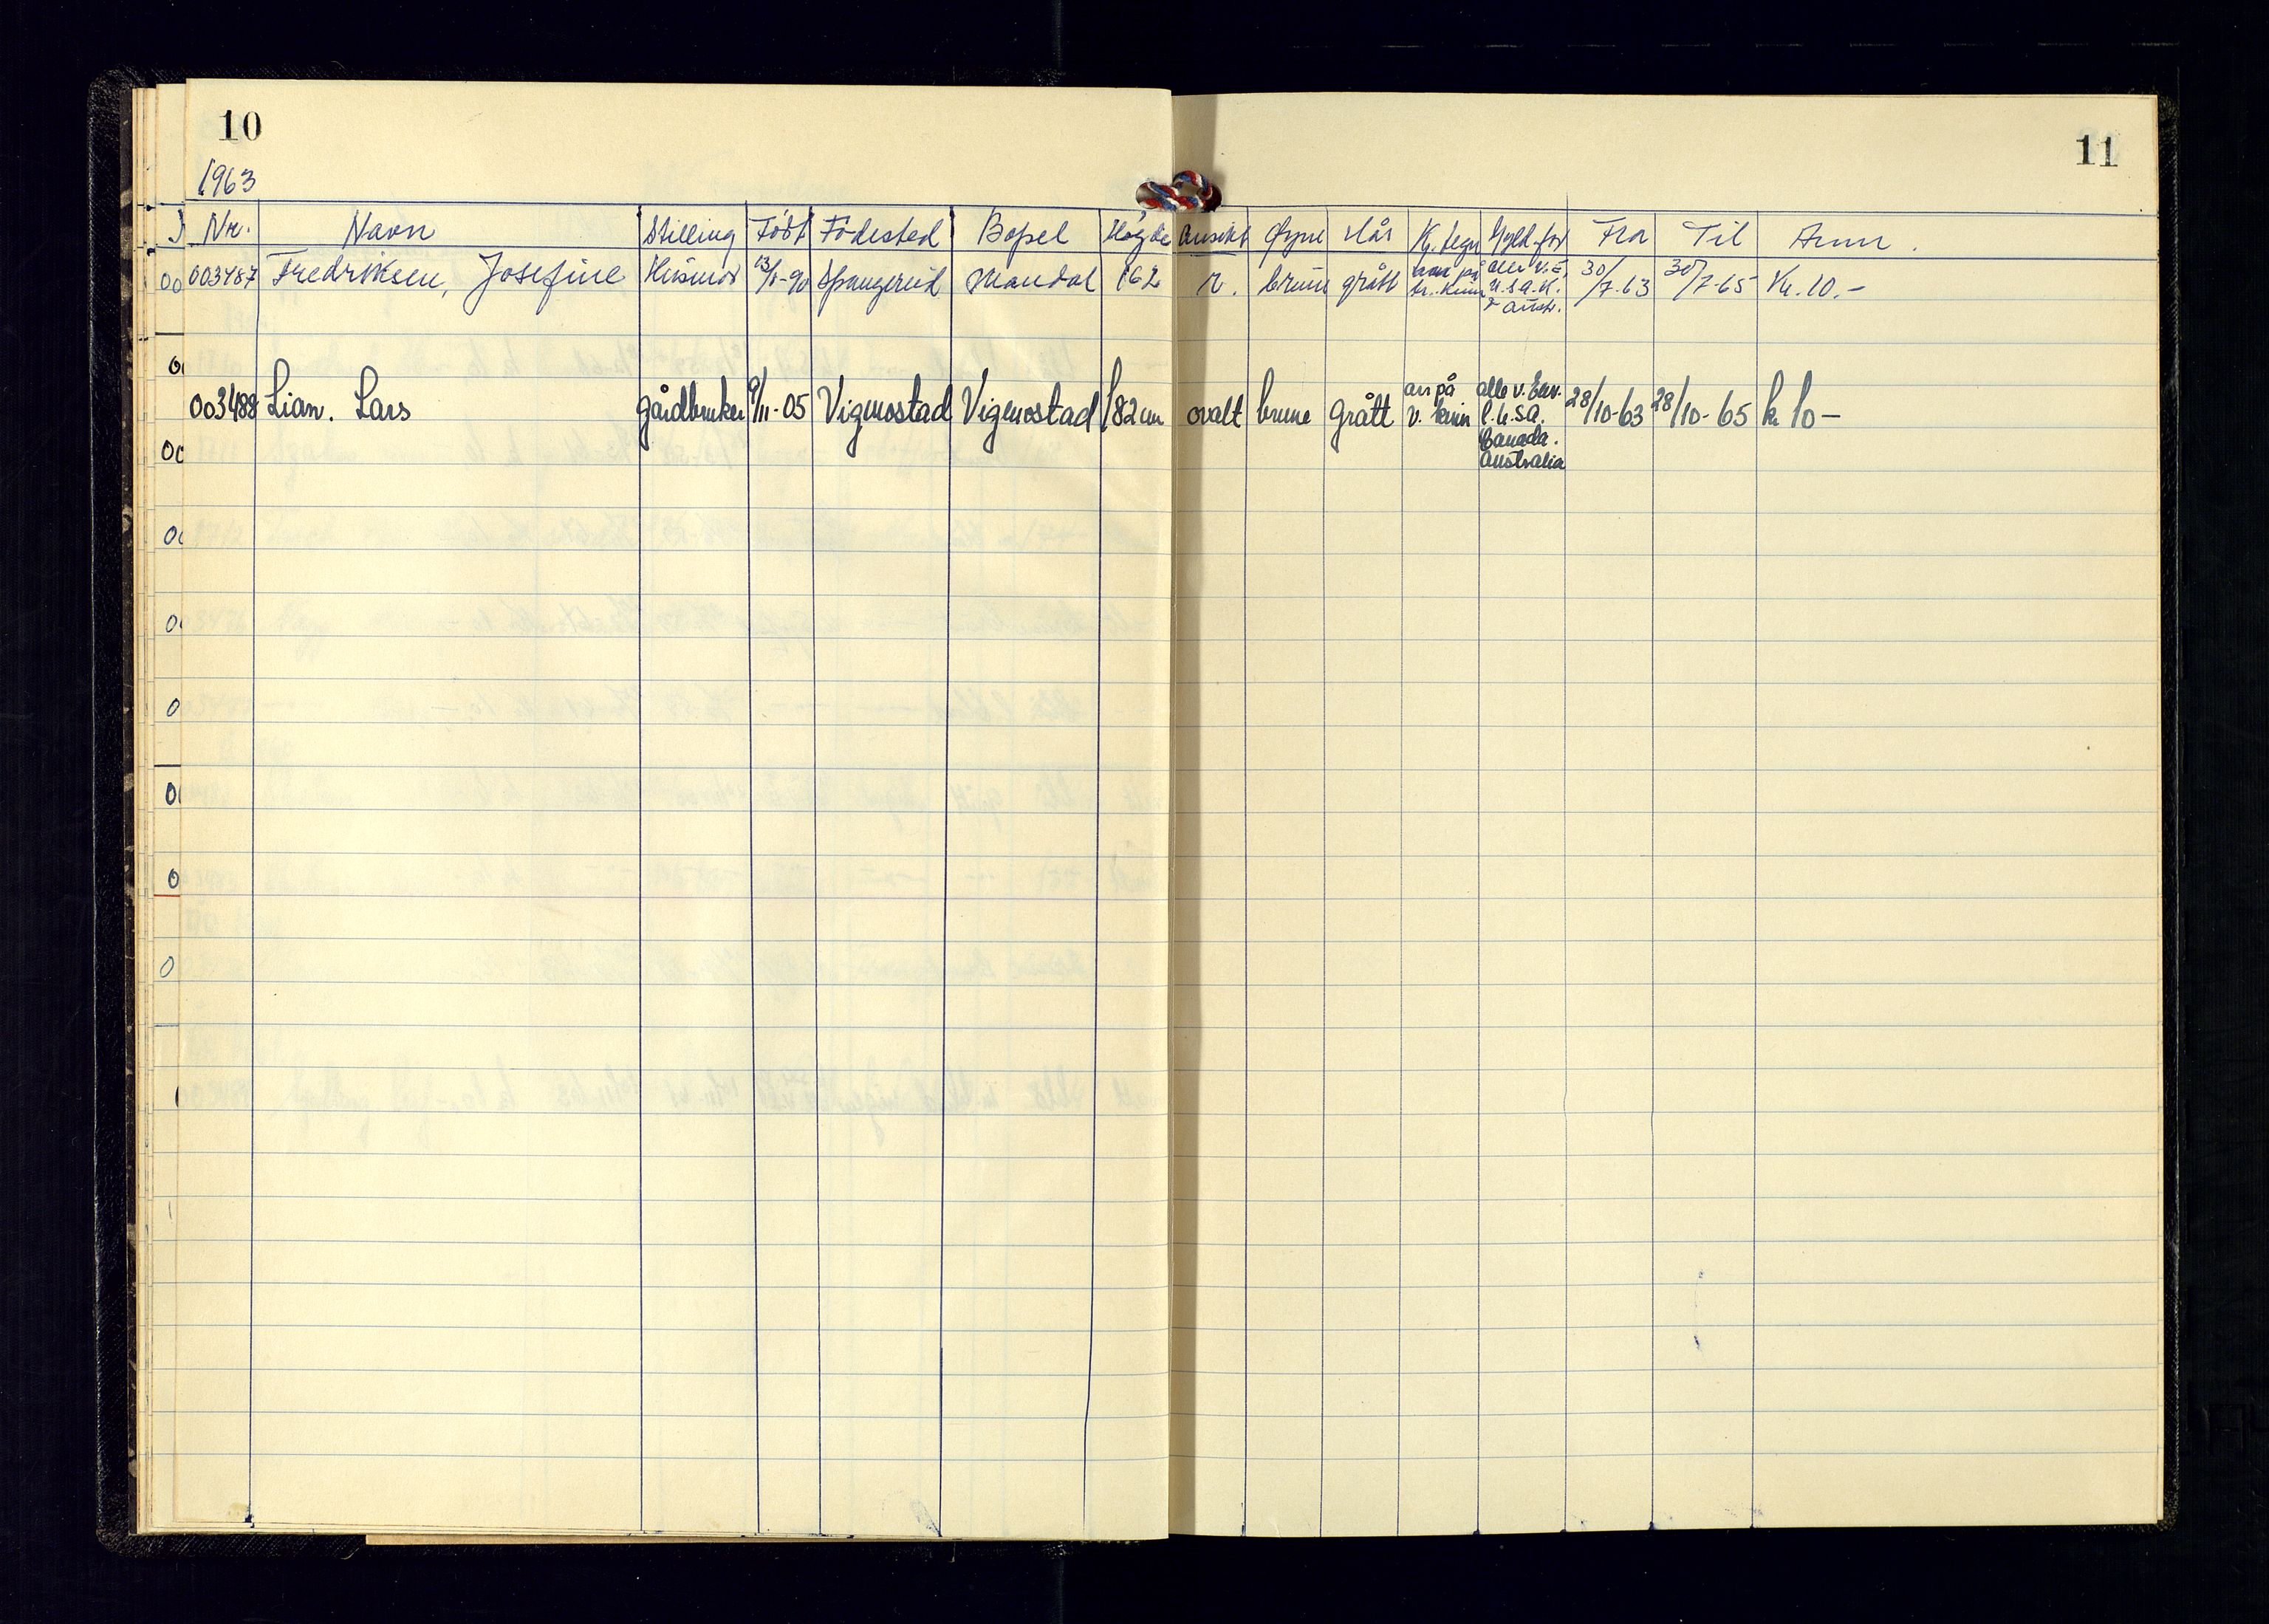 10
11
1963
Nr. Navn Stilling Født Fødested Bopel Høyde Ansikt Øyne Hår Kj. tegn Gyld. for Fra Til Anm.
003487 Fredriksen, Josefine Husmor 13/1-90 Spangereid Mandal 162 r. brune grått 30/7-63 30/7-65 Kr. 10.-
alle v. E.
U.S.A. K.
& Austr.
003488 Lian. Lars gårdbruker 9/11-05 Vigmostad Vigmostad 182 cm ovalt brune grått arr på v. kinn alle v. Eur. 28/10-63 28/10-65 kr 10-
U.S.A.
Canada.
Australia